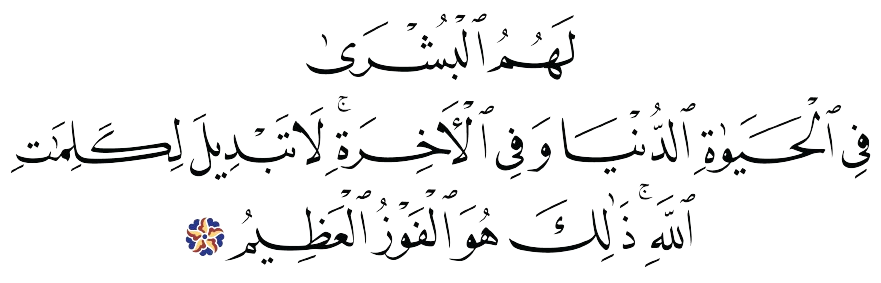 لَهُمُ ٱلْبُشْرَىٰ
فِى ٱلْحَيَوٰةِ ٱلدُّنْيَا وَفِى ٱلْأَخِرَةِ ۚ لَا تَبْدِيلَ لِكَلِمَٰتِ
ٱللَّهِ ۚ ذَٰلِكَ هُوَ ٱلْفَوْزُ ٱلْعَظِيمُ